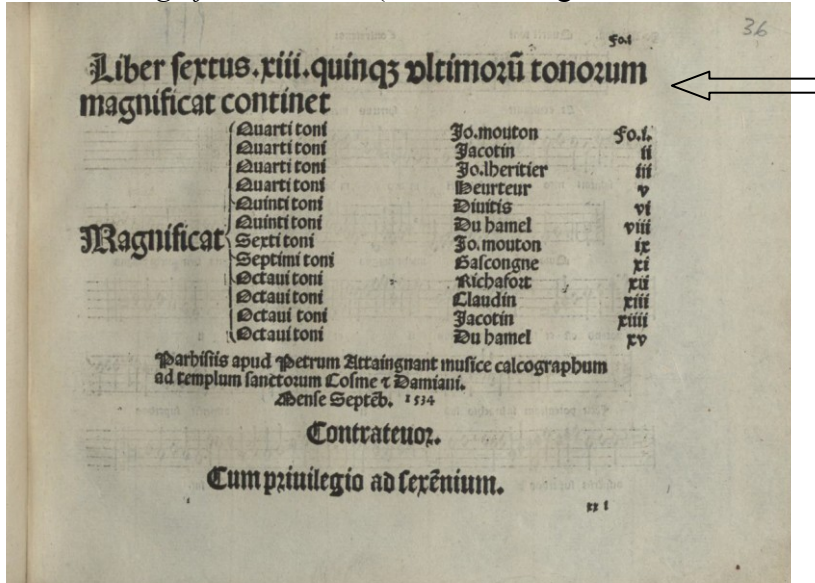 36
Fo.i
Liber sextus.xiii.quinqꝫ vltimorū tonorum
magnificat continet
Magnificat
Quarti toni Jo.mouton Fo.i.
Quarti toni Jacotin ii
Quarti toni Jo.lheritier iii
Quarti toni Heurteur v
Quinti toni Diuitis vi
Quinti toni Du hamel viii
Sexti toni Jo.mouton ix
Septimi toni Gascongne xi
Octaui toni Richafort xii
Octaui toni Claudin xiii
Octaui toni Jacotin xiiii
Octaui toni Du hamel xv
Parhisiis apud Petrum Attaingnant musice calcographum
ad templum sanctorum Cosme ⁊ Damiani.
Mense Septēb. 1534
Contratenor.
Cum priuilegio ad sexēnium.
xx i